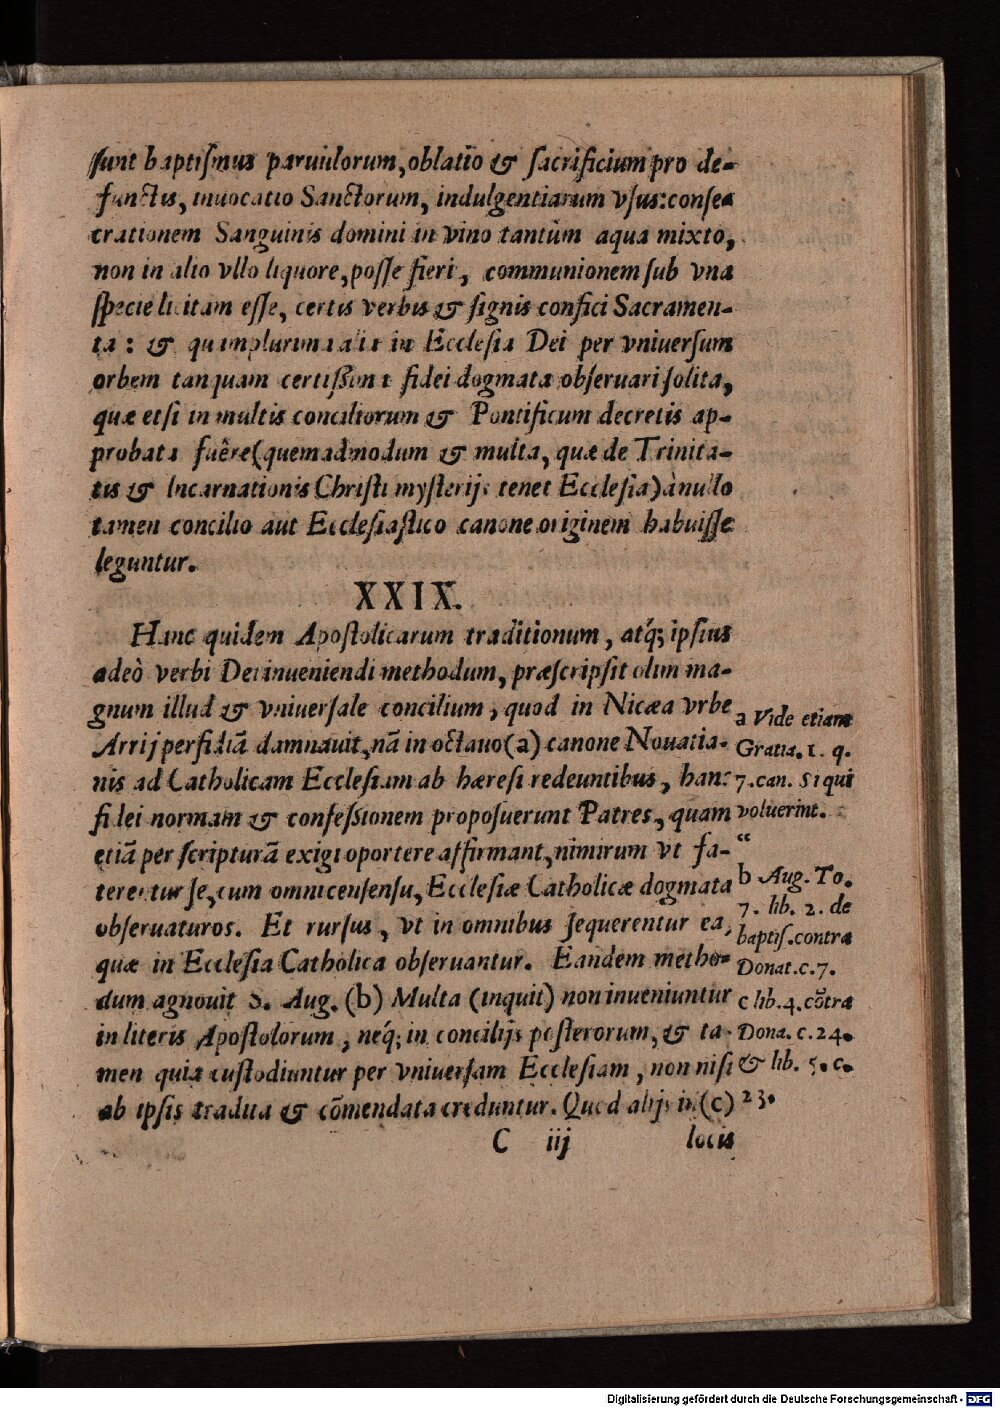 ſunt baptiſmus paruulorum, oblatio & ſacrificium pro de-
functis, inuocatio Sanctorum, indulgentiarum vſus: conſe-
crationem Sanguinis domini in vino tantùm aqua mixto,
non in alio vllo liquore, poſſe fieri, communionem ſub vna
ſpecie licitam eſſe, certis verbis & ſignis confici Sacramen-
ta: & quamplurima alia in Eccleſia Dei per vniuerſum
orbem tanquam certiſſima fidei dogmata obſeruari ſolita,
quæ etſi in multis conciliorum & Pontificum decretis ap-
probata fuêre (quemadmodum & multa, quæ de Trinita-
tis & Incarnationis Chriſti myſterijs tenet Eccleſia) à nullo
tamen concilio aut Eccleſiaſtico canone originem habuiſſe
leguntur.
XXIX.
Hanc quidem Apoſtolicarum traditionum, atq; ipſius
adeò verbi Dei inueniendi methodum, præſcripſit olim ma-
gnum illud & vniuerſale concilium, quod in Nicæa vrbe
Arrij perfidiā damnauit, nā in octauo (a) canone Nouatia-
nis ad Catholicam Eccleſiam ab hæreſi redeuntibus, hanc
fidei normam & confeſsionem propoſuerunt Patres, quam
etiā per ſcripturā exigi oportere affirmant, nimirum vt fa-
terentur ſe, cum omni cenſenſu, Eccleſiæ Catholicæ dogmata
obſeruaturos. Et rurſus, vt in omnibus ſequerentur ea,
quæ in Eccleſia Catholica obſeruantur. Eandem metho-
dum agnouit S. Aug. (b) Multa (inquit) non inueniuntur
in literis Apoſtolorum, neq; in concilijs poſterorum, & ta-
men quia cuſtodiuntur per vniuerſam Eccleſiam, non niſi
ab ipſis tradita & cōmendata creduntur. Quod alijs in (c)
C iij locis
a Vide etiam
Gratia. 1. q.
7. can. Si qui
voluerint.
“
b Aug. To.
7. lib. 2. de
baptiſ. contra
Donat. c. 7.
c lib. 4. cōtra
Dona. c. 24.
& lib. 5. c.
23.
Digitalisierung gefördert durch die Deutsche Forschungsgemeinschaft - DFG